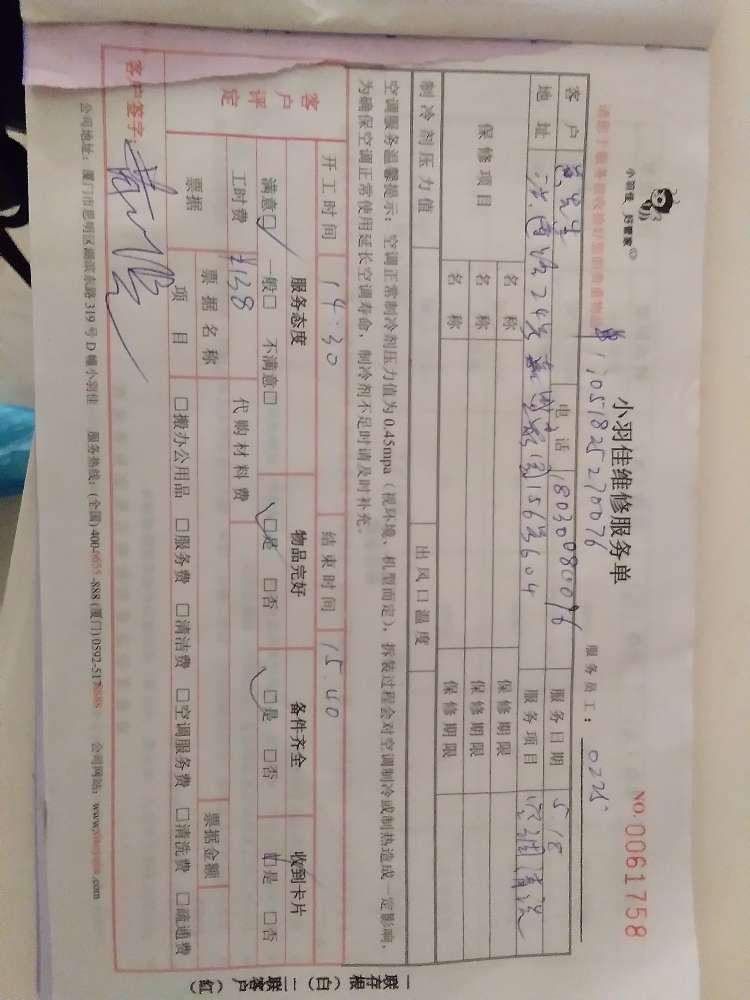 小羽佳 好管家
小羽佳维修服务单
NO. 0061758
17051825270076
服务员工： 0225
客户 电话 18030080076 服务日期 5/8
地址 24号 156号604 服务项目 空调清洗
保修项目 名称 保修期限
名称 保修期限
名称 保修期限
制冷剂压力值 出风口温度
空调服务温馨提示：空调正常制冷剂压力值为0.45mpa（视环境、机型而定），拆装过程会对空调制冷或制热造成一定影响，
为确保空调正常使用延长空调寿命，制冷剂不足时请及时补充。
开工时间 14:30 结束时间 15.40
客户评定 服务态度 物品完好 备件齐全 收到卡片
满意□ 一般□ 不满意□ □是 □否 □是 □否 □是 □否
工时费 ¥138 代购材料费
票据 票据名称 票据金额
项目 □搬办公用品 □服务费 □清洁费 □空调服务费 □清洗费 □疏通费
客户签字：
公司地址：厦门市思明区湖滨东路319号D幢小羽佳 服务热线：(全国)400-6655-888 (厦门)0592-5178888 公司网站：www. .com
一联存根（白）二联客户（红）